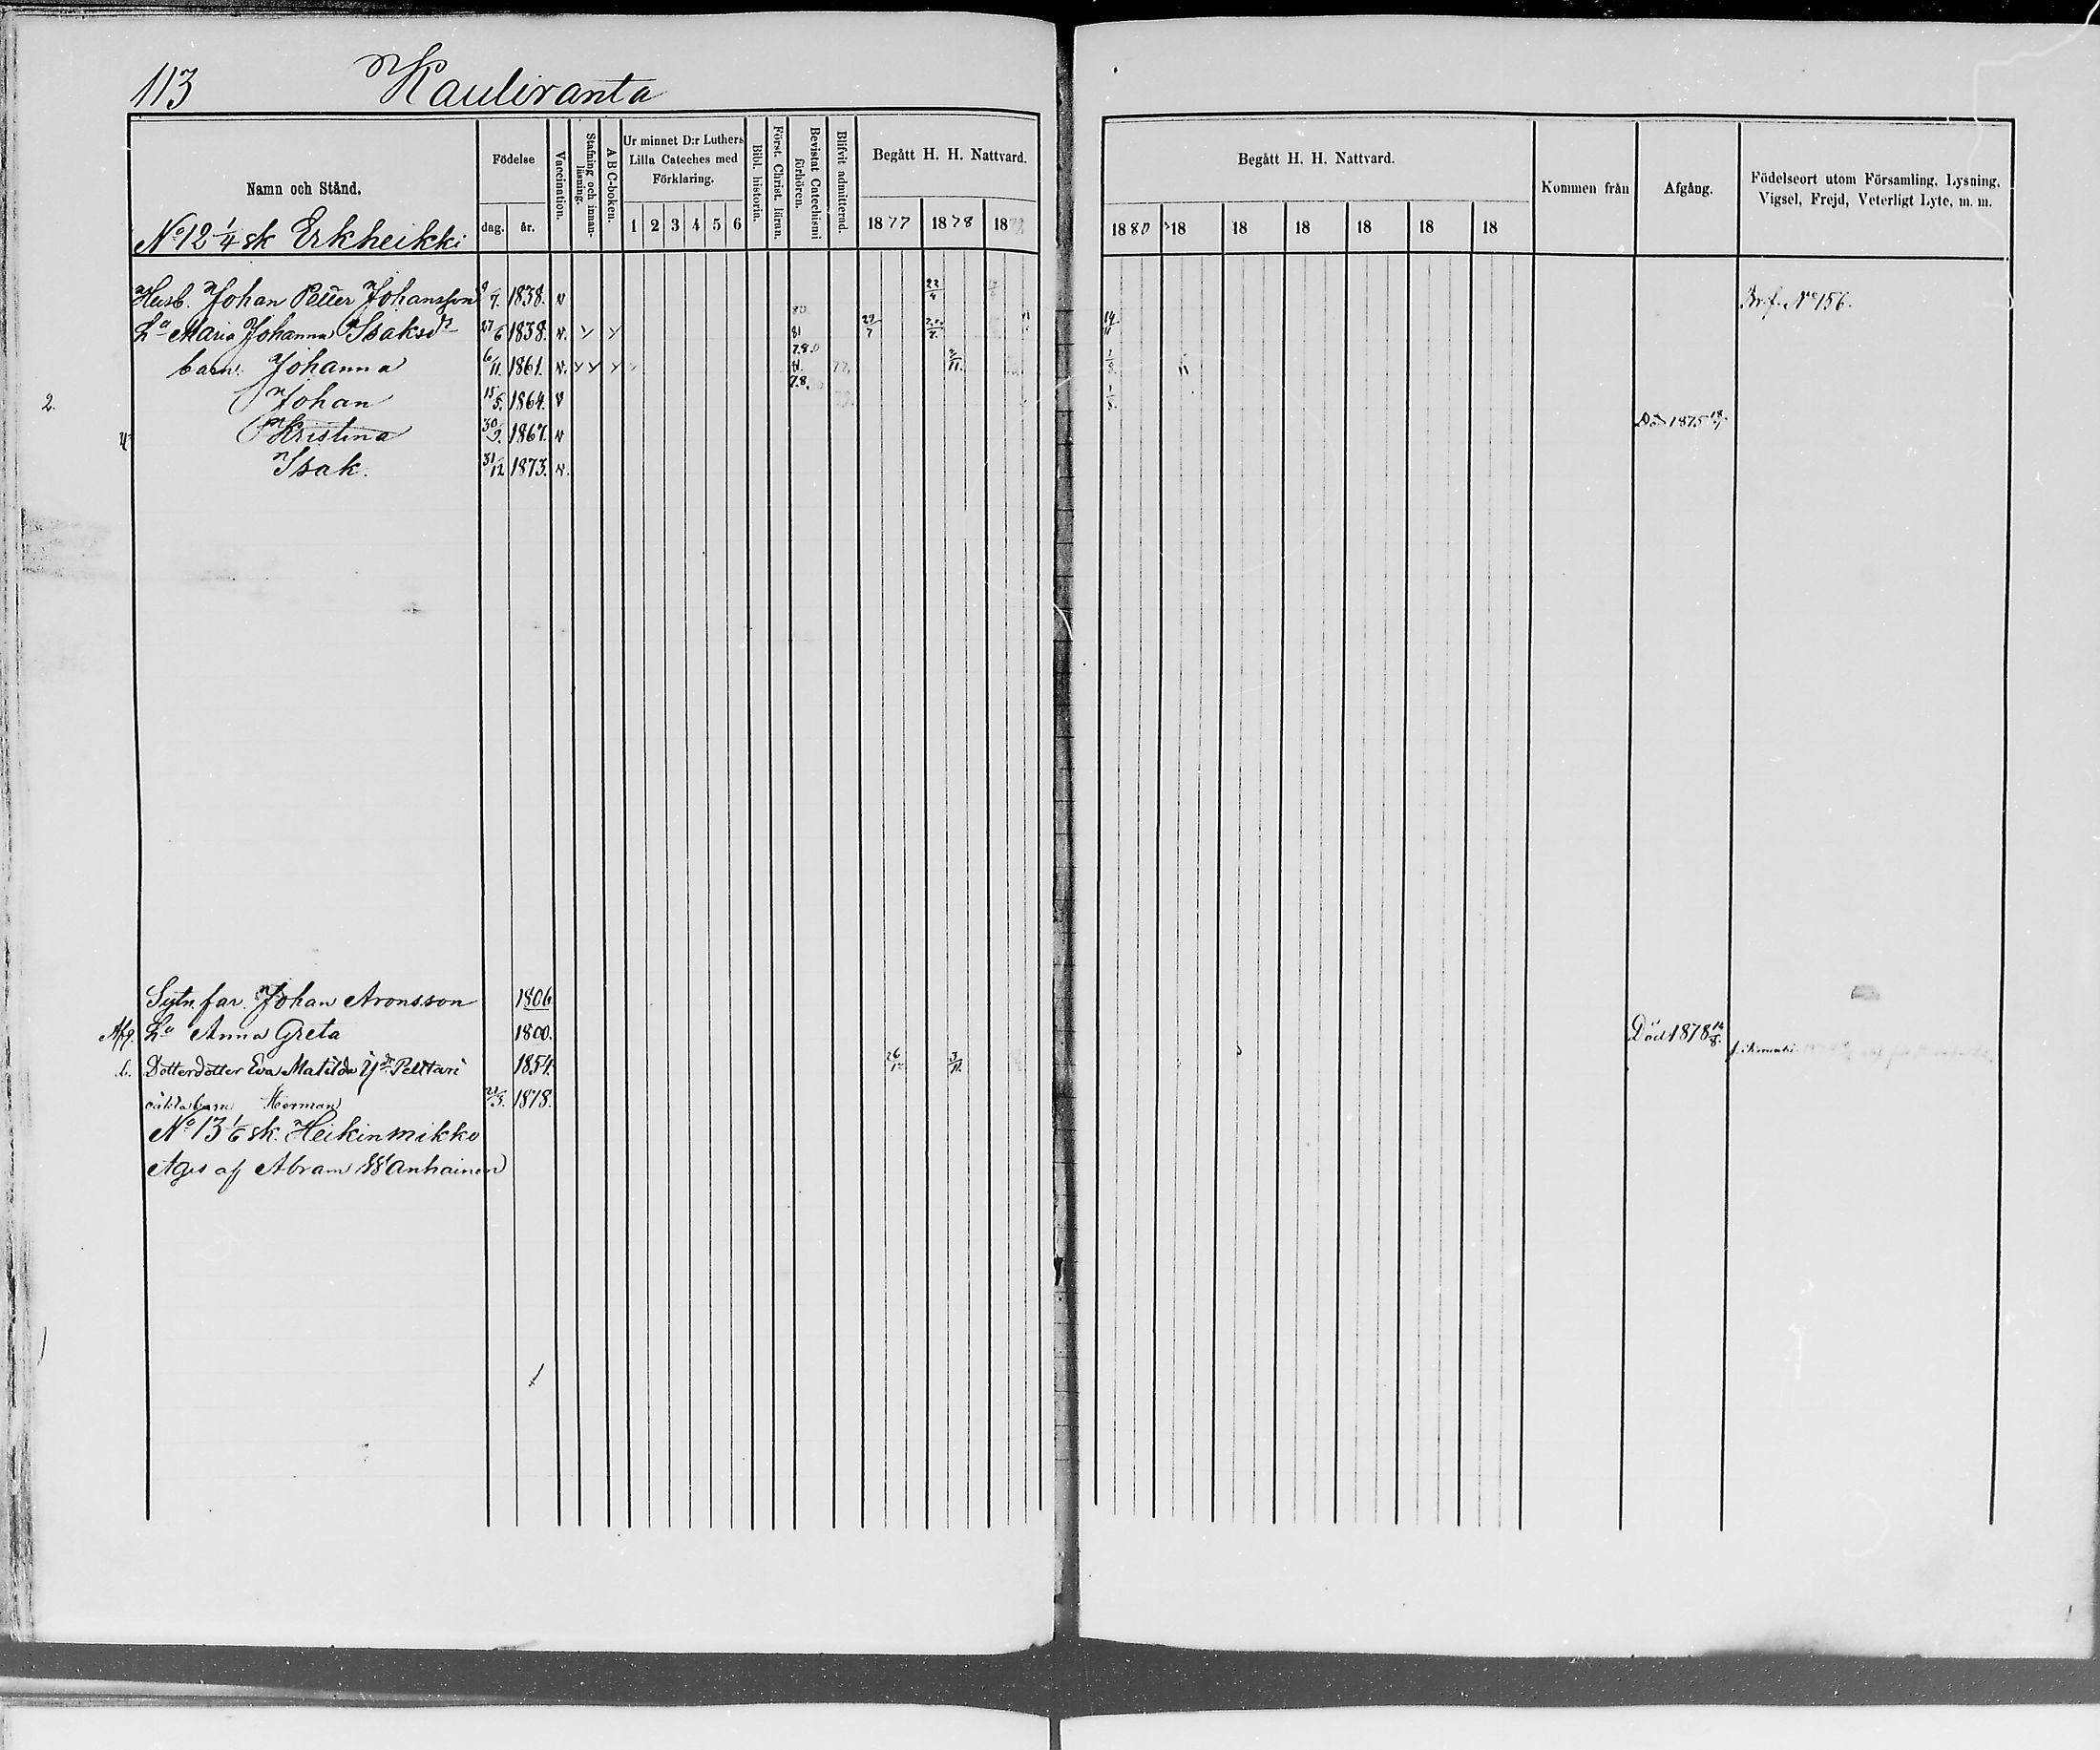 113 Kauliranta
Namn och Stånd.
Födelse
dag. år.
Vaccination.
Stafning och innanläsning.
A B C-boken.
Ur minnet D:r Luthers Lilla Cateches med Förklaring.
1 2 3 4 5 6
Bibl. historia.
Först. Christ. läran.
Bevistat Catechismi förhören.
Blifvit admitterad.
Begått H. H. Nattvard.
1877 1878 18
Begått H. H. Nattvard.
1880 18 18 18 18 18 18
Kommen från
Afgång.
Födelseort utom Församling, Lysning, Vigsel, Frejd, Veterligt Lyte, m. m.
No 12 1/4 sk Erkheikki
Husb. Johan Petter Johansson 9/7. 1838. v 22/4 No 156.
Hu Maria Johanna Isaksdr 27/6 1838. v. 81
barn: Johanna 6/11. 1861. v. 78
2. Johan 15/5. 1864. v 78 1/8
Kristina 30/9. 1867. v 1875
Isak. 31/12 1873. v.
Sytn. far. Johan Aronsson 1806
Afg. Hu Anna Greta 1800. Död 1878 14/8.
Dotterdotter Eva Matilda Peltari 1854. 26/12 3/11.
oäkta barn Herman 1878.
No 13 1/6 sk. Heikinmikko
Äges af Abram Wanhainen